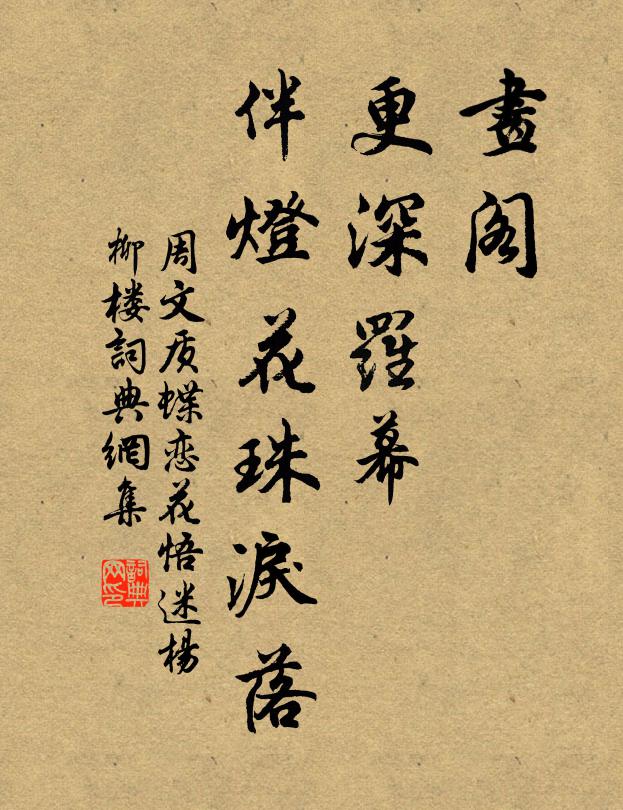 畫閣
更深羅幕
伴燈花珠淚落
周文质蝶恋花悟迷楊
柳楼詞典網集
詞典
网印